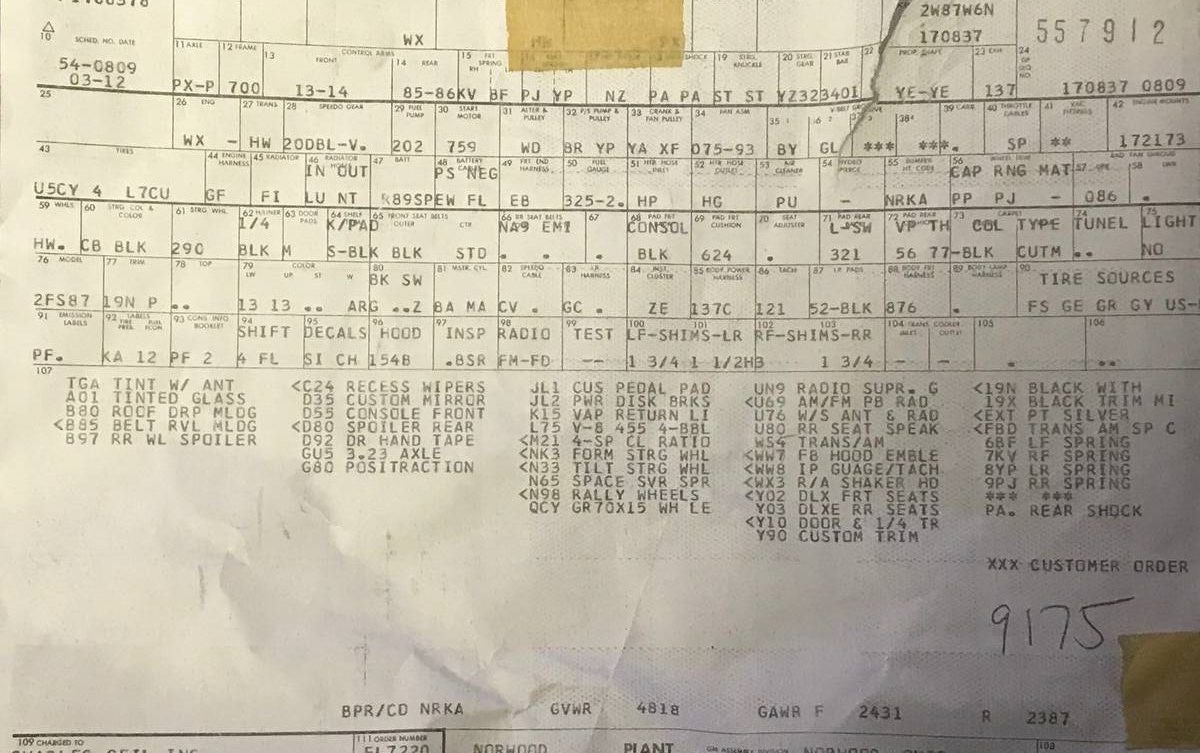 2W87W6N
10 SCHED. NO. DATE WX 170837 557912
54-0809
03-12
11 AXLE 12 FRAME 13 CONTROL ARMS FRONT 14 REAR 15 FRT SPRING RH SHOCK 19 STRG KNUCKLE 20 STRG GEAR 21 STAB BAR 22 PROP. SHAFT 23 EXH 24
PX-P 700 13-14 85-86KV BF PJ YP NZ PA PA ST ST YZ323401 YE-YE 137 170837 0809
25 26 ENG 27 TRANS 28 SPEEDO GEAR 29 FUEL PUMP 30 START MOTOR 31 ALTER & PULLEY 32 P/S PUMP & PULLEY 33 CRANK & FAN PULLEY 34 FAN ASM 35 38 39 CARB 40 THROTTLE CABLES 41 VAC FITTINGS 42 ENGINE MOUNTS
WX - HW 20DBL-V. 202 759 WD BR YP YA XF 075-93 BY GL *** ***. SP ** 172173
43 TIRES 44 ENGINE HARNESS 45 RADIATOR 46 RADIATOR HOSES IN OUT 47 BATT 48 BATTERY CABLES PS NEG 49 FRT END HARNESS 50 FUEL GAUGE 51 HTR HOSE INLET 52 HTR HOSE OUTLET 53 AIR CLEANER 54 55 BUMPER HT. CODE 56 WHEEL TRIM CAP RNG MAT 57 58
U5CY 4 L7CU GF FI LU NT R89SPEW FL EB 325-2. HP HG PU - NRKA PP PJ - 086 .
59 WHLS 60 STRG COL & COLOR 61 STRG WHL 62 H/LINER 1/4 63 DOOR PADS 64 SHELF K/PAD 65 FRONT SEAT BELTS OUTER CTR 66 RR SEAT BELTS NA9 EMI 67 68 PAD FRT CONSOL 69 PAD FRT CUSHION 70 SEAT ADJUSTER 71 PAD REAR L-SW 72 PAD REAR VP TH 73 CARPET COL TYPE 74 TUNEL 75 LIGHT
HW. CB BLK 290 BLK M S-BLK BLK STD . . BLK 624 . 321 56 77-BLK CUTM .. NO
76 MODEL 77 TRIM 78 TOP 79 COLOR LW UP ST W 80 BK SW 81 MSTR. CYL. 82 SPEEDO CABLE 83 I.P. HARNESS 84 INST. CLUSTER 85 BODY POWER HARNESS 86 TACH 87 I.P. PADS 88 BODY FRT HARNESS 89 BODY LAMP HARNESS 90 TIRE SOURCES
2FS87 19N P .. 13 13 .. ARG ..Z BA MA CV . GC . ZE 137C 121 52-BLK 876 . FS GE GR GY US-
91 EMISSION LABELS 92 LABELS TIRE PRES. FUEL ECON 93 CONS. INFO BOOKLET 94 SHIFT 95 DECALS 96 HOOD 97 INSP 98 RADIO 99 TEST 100 LF-SHIMS-LR 101 102 RF-SHIMS-RR 103 104 TRANS COOLER INLET OUTLET 105 106
PF. KA 12 PF 2 4 FL SI CH 154B .BSR FM-FD -- 1 3/4 1 1/2H3 1 3/4 - - . ..
107
TGA TINT W/ ANT <C24 RECESS WIPERS JL1 CUS PEDAL PAD UN9 RADIO SUPR. G <19N BLACK WITH
A01 TINTED GLASS D35 CUSTOM MIRROR JL2 PWR DISK BRKS <U69 AM/FM PB RAD 19X BLACK TRIM MI
B80 ROOF DRP MLDG D55 CONSOLE FRONT K15 VAP RETURN LI U76 W/S ANT & RAD <EXT PT SILVER
<B85 BELT RVL MLDG <D80 SPOILER REAR L75 V-8 455 4-BBL U80 RR SEAT SPEAK <FBD TRANS AM SP C
B97 RR WL SPOILER D92 DR HAND TAPE <M21 4-SP CL RATIO WS4 TRANS/AM 6BF LF SPRING
GU5 3.23 AXLE <NK3 FORM STRG WHL <WW7 FB HOOD EMBLE 7KV RF SPRING
G80 POSITRACTION <N33 TILT STRG WHL <WW8 IP GUAGE/TACH 8YP LR SPRING
N65 SPACE SVR SPR <WX3 R/A SHAKER HD 9PJ RR SPRING
<N98 RALLY WHEELS <Y02 DLX FRT SEATS *** ***
QCY GR70X15 WH LE Y03 DLXE RR SEATS PA. REAR SHOCK
<Y10 DOOR & 1/4 TR
Y90 CUSTOM TRIM
XXX CUSTOMER ORDER
9175
BPR/CD NRKA GVWR 4818 GAWR F 2431 R 2387
109 CHARGED TO 111 ORDER NUMBER NORWOOD PLANT